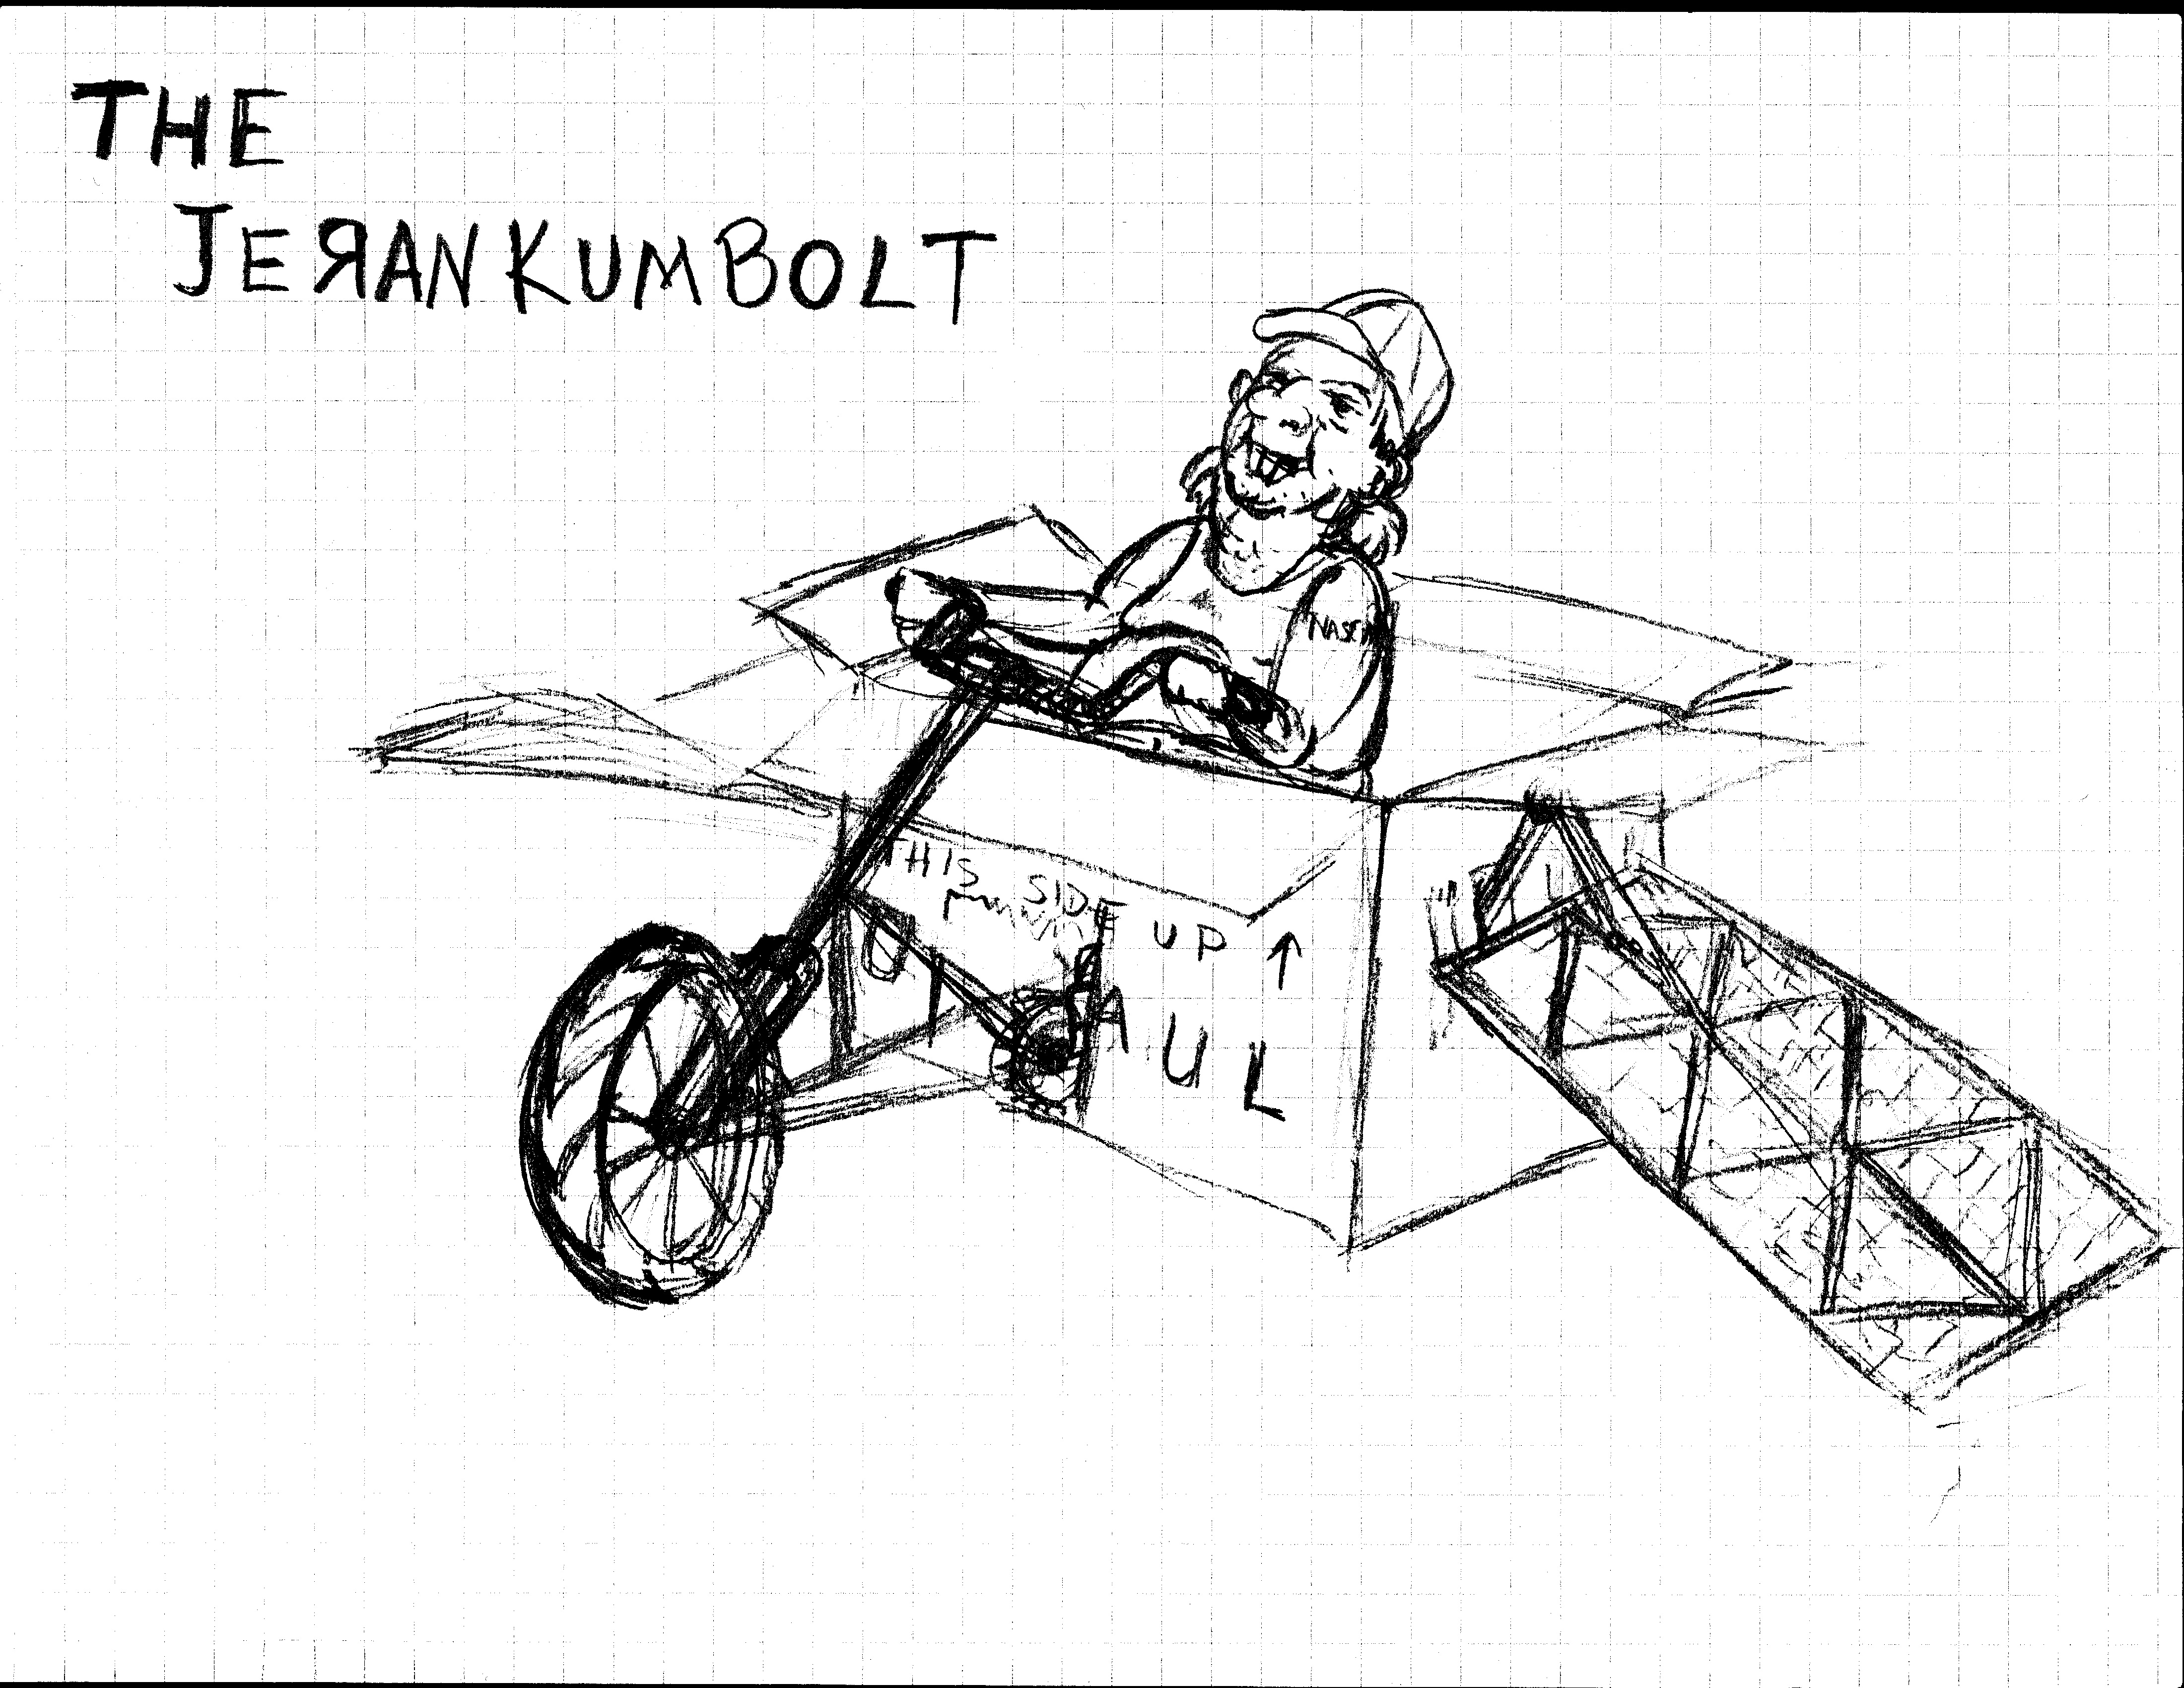 THE
JEЯANKUMBOLT
THIS SIDE UP ↑
U HAUL